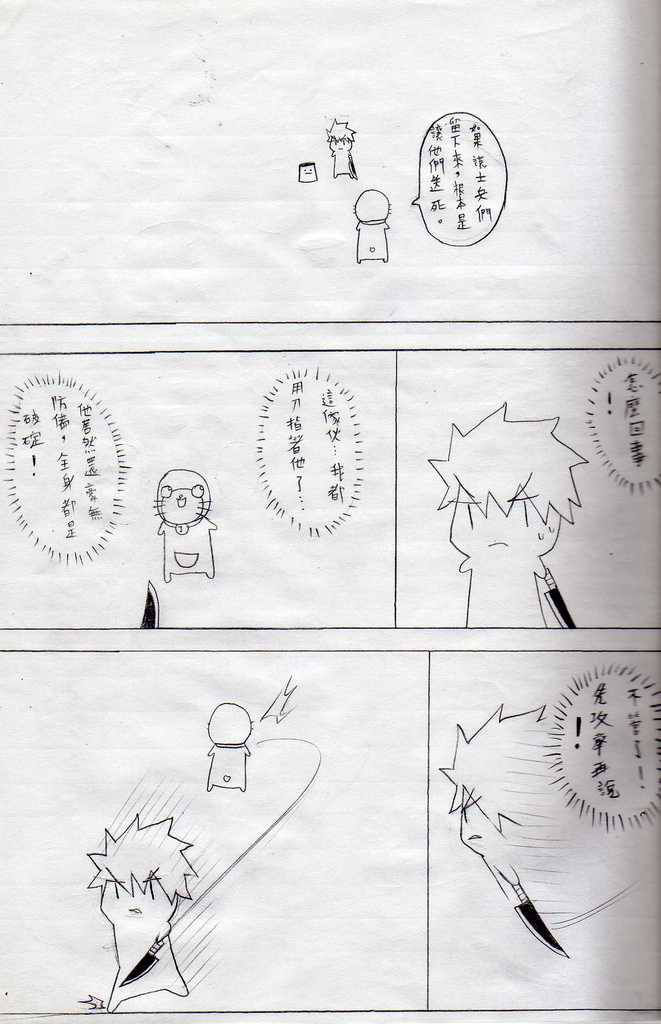 如果說士兵們
留下來，根本是
讓他們送死。
怎麼回事
！
這傢伙…我都
用刀指著他了…
他居然還毫無
防備，全身都是
破綻！
不管了！
先攻擊再說
！